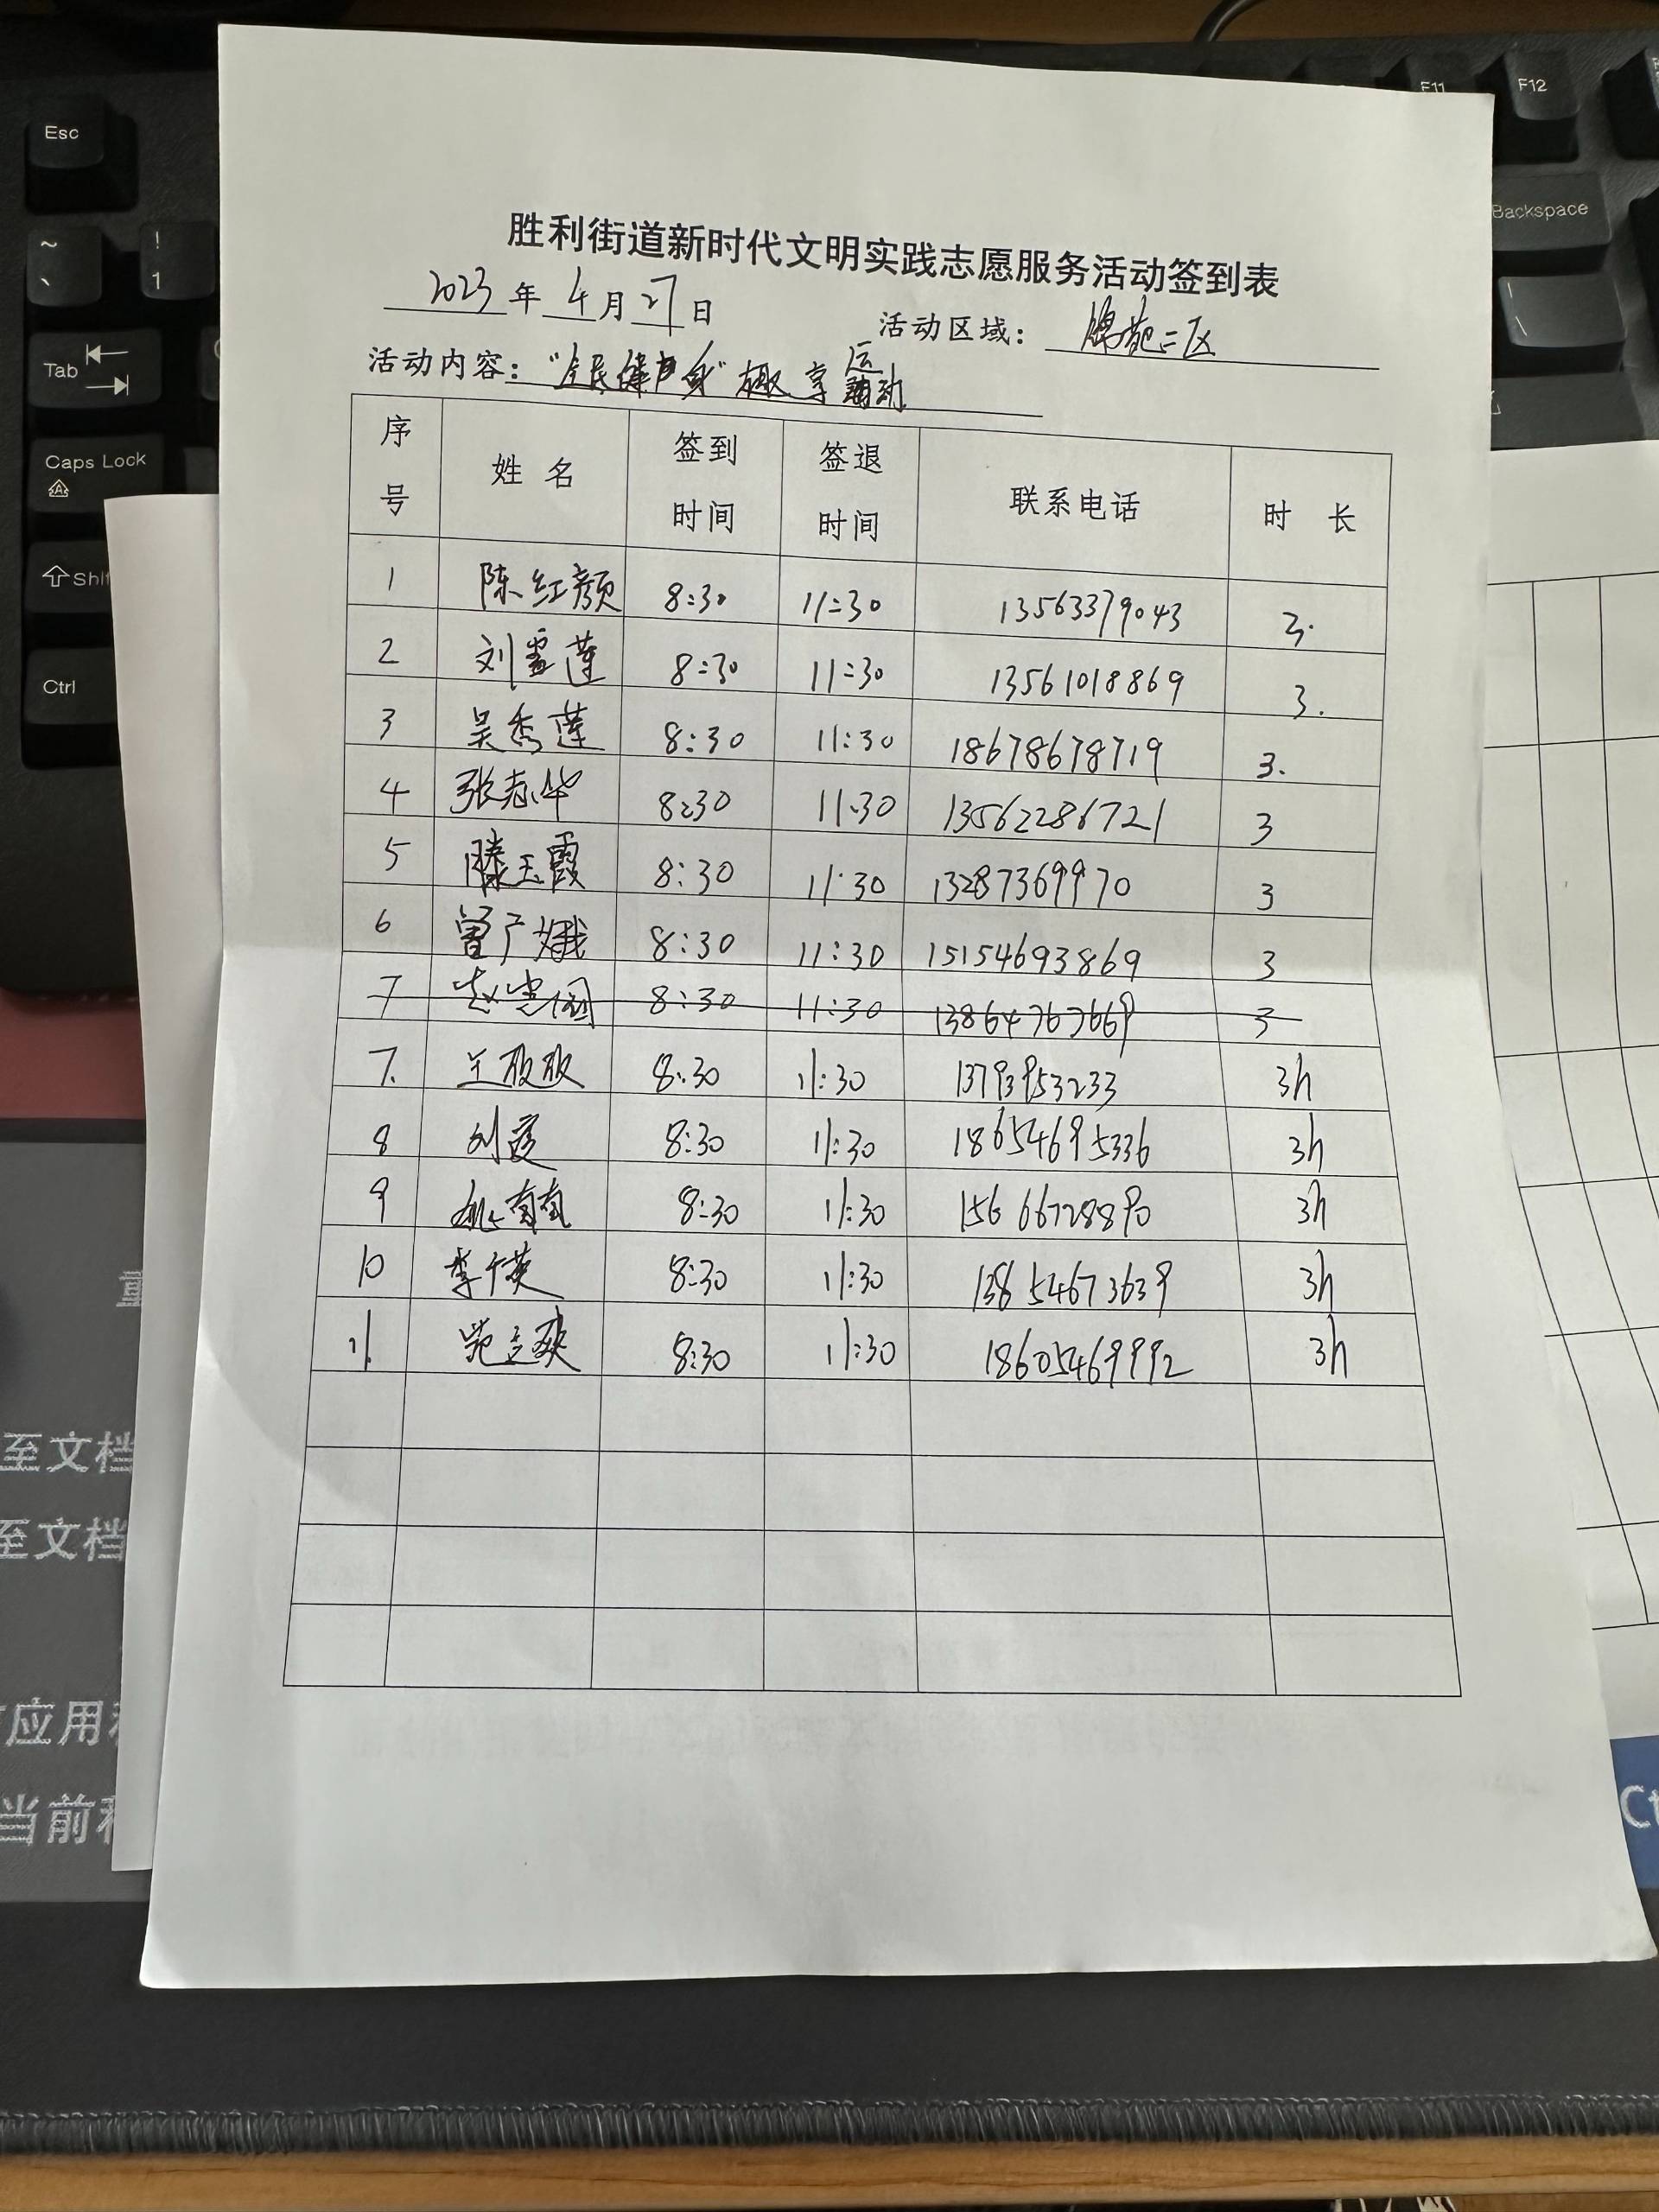 Esc
F11
F12
~
、
!
1
Backspace
\
Tab
Caps Lock
A
Shi
Ctrl
胜利街道新时代文明实践志愿服务活动签到表
2023年4月27日
活动区域：锦苑二区
活动内容："全民健身"趣享运动
序号 姓名 签到时间 签退时间 联系电话 时长
1 陈红颜 8:30 11:30 13563379043 3.
2 刘雪莲 8:30 11:30 13561018869 3.
3 吴秀莲 8:30 11:30 18678678719 3.
4 张志华 8:30 11:30 13562286721 3
5 滕玉霞 8:30 11:30 13287369970 3
6 曾广娥 8:30 11:30 15154693869 3
7 8:30 11:30 13864767669 3
7. 王 8:30 11:30 13793953233 3h
8 刘霞 8:30 11:30 18654695336 3h
9 姚 8:30 11:30 15666728890 3h
10 李 英 8:30 11:30 13854673639 3h
11. 苑立爽 8:30 11:30 18605469992 3h
重
至文档
至文档
应用程
当前程
Ct